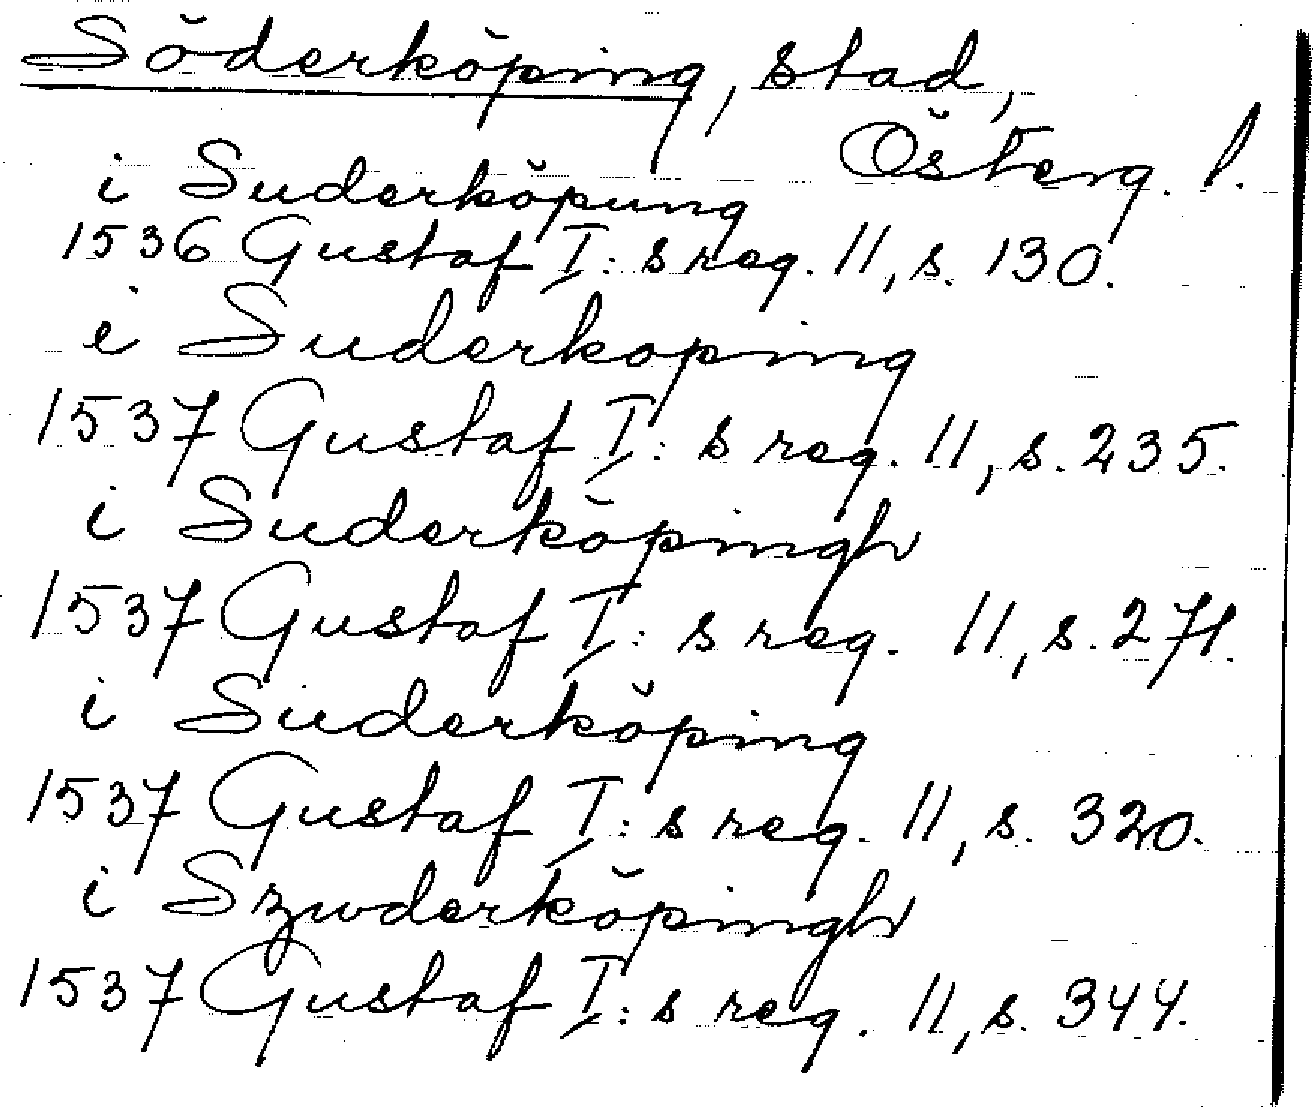 Söderköping, stad,
Österg. l.
i Suderköpung
1536 Gustaf I:s reg. 11, s. 130.
i Suderkoping
1537 Gustaf I:s reg. 11, s. 235.
i Suderköpingh
1537 Gustaf I:s reg. 11, s. 271.
i Suderköping
1537 Gustaf I:s reg. 11, s. 320.
i Szwderköpingh
1537 Gustaf I:s reg. 11, s. 344.